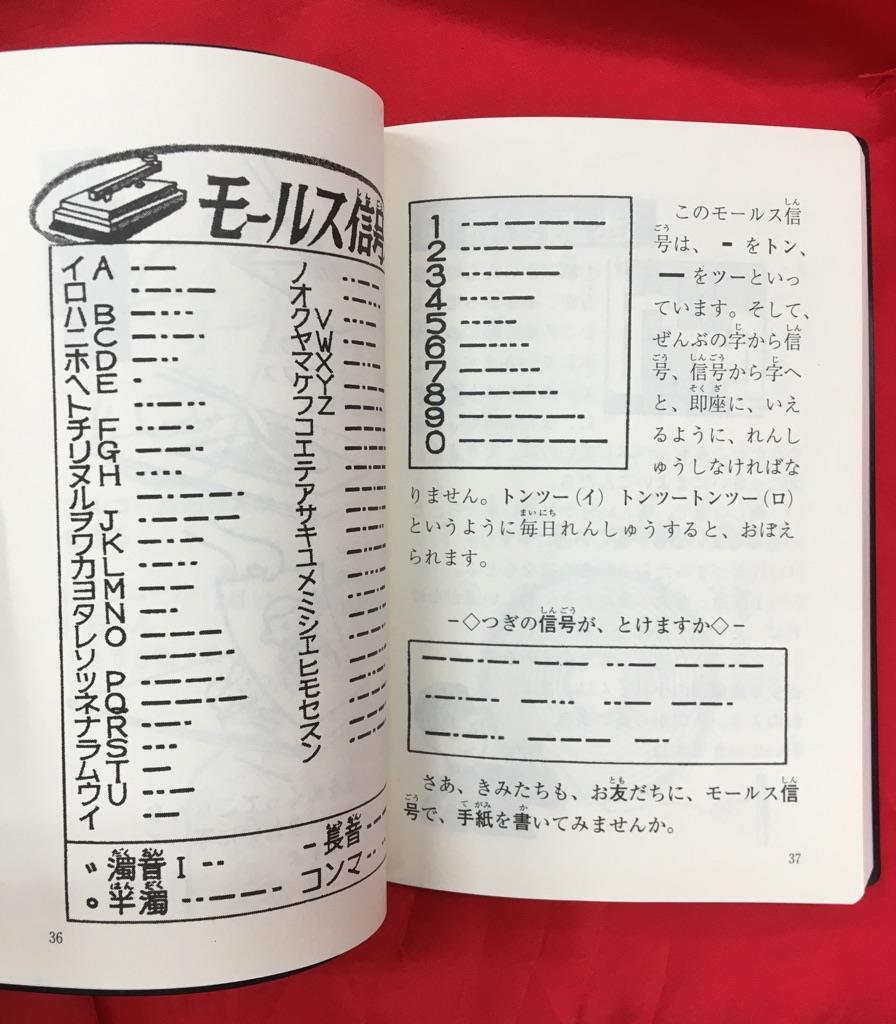 モールス信号
イ A
ロ
ハ B
ニ C
ホ D
ヘ E
ト
チ F
リ G
ヌ H
ル
ヲ J
ワ K
カ L
ヨ M
タ N
レ O
ソ
ツ P
ネ Q
ナ R
ラ S
ム T
ウ U
イ
ノ
オ
ク V
ヤ W
マ X
ケ Y
フ Z
コ
エ
テ
ア
サ
キ
ユ
メ
ミ
シ
ヱ
ヒ
モ
セ
ス
ン
〃 濁音 I
。 半濁
ー長音
コンマ
36
1
2
3
4
5
6
7
8
9
0
このモールス信
号は、 - をトン、
━ をツーといっ
ています。そして、
ぜんぶの字から信
号、信号から字へ
と、即座に、いえ
るように、れんし
ゅうしなければな
りません。トンツー(イ) トンツートンツー(ロ)
というように毎日れんしゅうすると、おぼえ
られます。
-◇つぎの信号が、とけますか◇-
さあ、きみたちも、お友だちに、モールス信
号で、手紙を書いてみませんか。
37